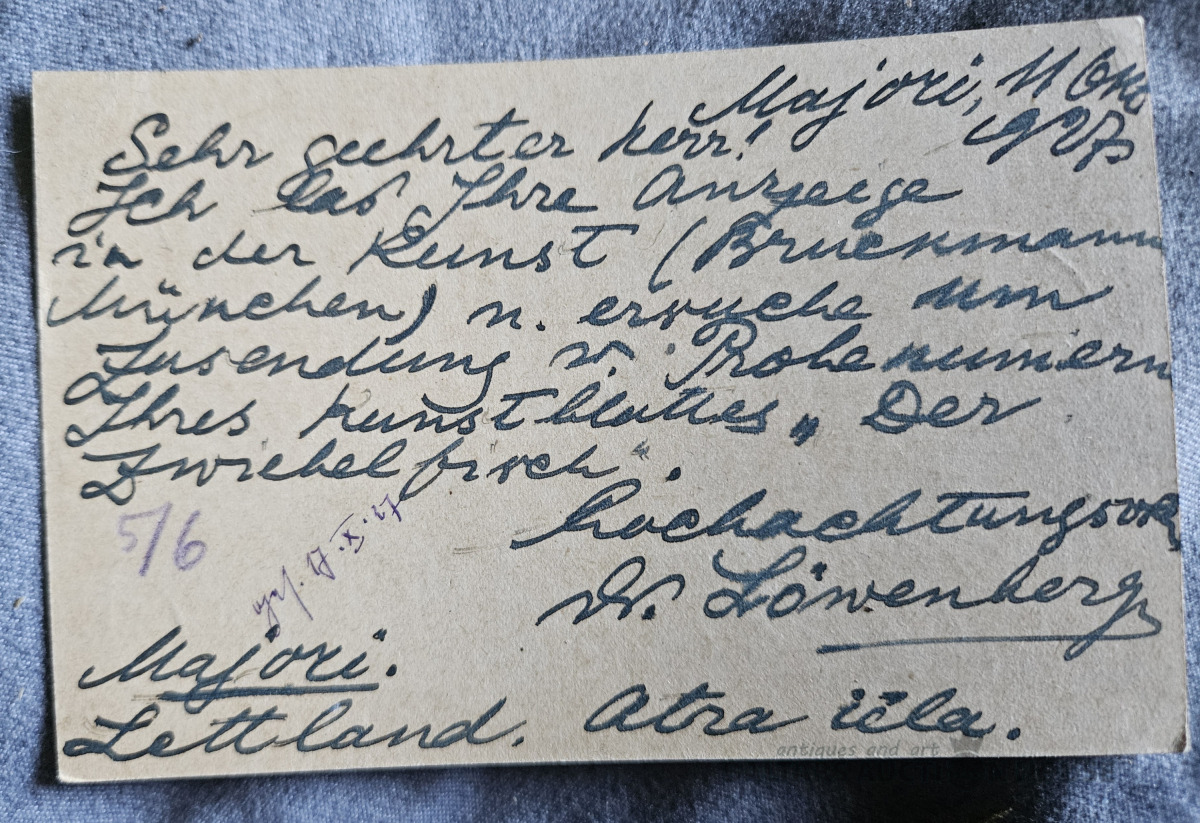 Majori, 11 Okt
1927
Sehr geehrter Herr!
Ich las Ihre Anzeige
in der Kunst (Bruckmann
München) u. ersuche um
Zusendung v. Probenumern
Ihres Kunstblattes „Der
Zwiebelfisch“.
Hochachtungsvoll
W. Löwenberg
5/6
17. X. 27
Majori.
Lettland. Atra iela.
antiques and art